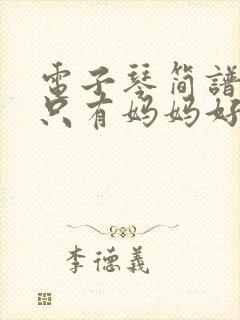 電子琴简譜
只有妈妈好
李德義